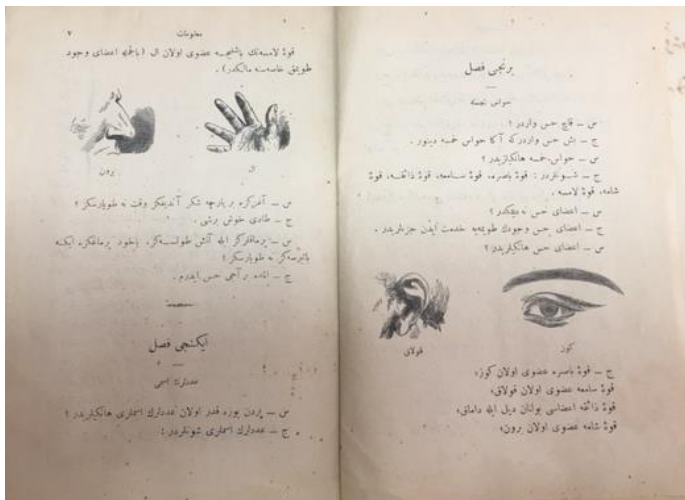 برنجی فصل
حواس خمسه
س — قاچ حس واردر ؟
ج — بش حس واردركه آكا حواس خمسه دینور .
س — حواس خمسه هانكیلریدر ؟
ج — شونلردر : قوهٔ باصره، قوهٔ سامعه، قوهٔ ذائقه، قوهٔ
شامه، قوهٔ لامسه .
س — اعضای حس نه دیمكدر ؟
ج — اعضای حس وجودك طویمغه خدمت ایدن جزءلریدر .
س — اعضای حس هانكیلریدر ؟
كوز
قولاق
ج — قوهٔ باصره عضوی اولان كوز؛
قوهٔ سامعه عضوی اولان قولاق؛
قوهٔ ذائقه اعضاسی بولنان دیل ایله داماق؛
قوهٔ شامه عضوی اولان برون؛
معلومات
٧
قوهٔ لامسه‌نك باشلیجه عضوی اولان ال (باجمله اعضای وجود
طویمق خاصه‌سنه مالكدر) .
ال
برون
س — آغزكزه بر پارچه شكر آلدیغكز وقت نه طویارسكز ؟
ج — طادی خوش برشی .
س — پرماقلركز ایله آتش طوتسه‌كز، یاخود پرماغكزه ایكنه
باتیرسه‌كز نه طویارسكز ؟
ج — بر آجی حس ایدرم .
ایكنجی فصل
عددلرك اسمی
س — بردن یوزه قدر اولان عددلرك اسملری هانكیلریدر ؟
ج — عددلرك اسملری شونلردر :